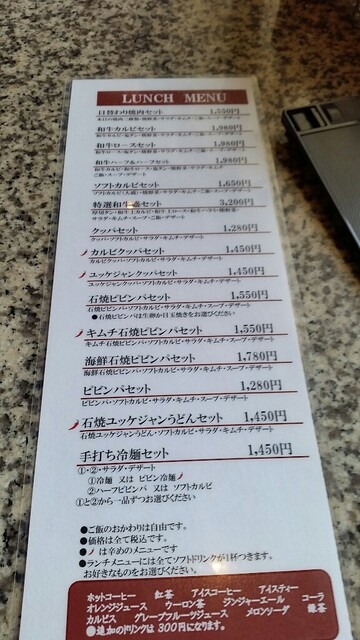 LUNCH MENU
日替わり焼肉セット 1,550円
和牛カルビセット 1,980円
和牛ロースセット 1,980円
和牛ハーフ&ハーフセット 1,980円
ごはん・スープ・デザート
ソフトカルビセット 1,650円
特選和牛 セット 3,200円
サラダ・キムチ・スープ・ご飯・デザート
クッパセット 1,280円
クッパ・ソフトカルビ・サラダ・キムチ・デザート
カルビクッパセット 1,450円
カルビクッパ・ソフトカルビ・サラダ・キムチ・デザート
ユッケジャンクッパセット 1,450円
ユッケジャンクッパ・ソフトカルビ・サラダ・キムチ・デザート
石焼ビビンパセット 1,550円
石焼ビビンパ・ソフトカルビ・サラダ・キムチ・スープ・デザート
●石焼ビビンパは生卵か目玉焼きをお選びください
キムチ石焼ビビンパセット 1,550円
キムチ石焼ビビンパ・ソフトカルビ・サラダ・キムチ・スープ・デザート
海鮮石焼ビビンパセット 1,780円
海鮮石焼ビビンパ・ソフトカルビ・サラダ・キムチ・スープ・デザート
ビビンパセット 1,280円
ビビンパ・ソフトカルビ・サラダ・キムチ・スープ・デザート
石焼ユッケジャンうどんセット 1,450円
石焼ユッケジャンうどん・ソフトカルビ・サラダ・キムチ・デザート
手打ち冷麺セット 1,450円
①・②・サラダ・デザート
①冷麺 又は ビビン冷麺
②ハーフビビンパ 又は ソフトカルビ
①と②から一品ずつお選びください
●ご飯のおかわりは自由です。
●価格は全て税込です。
● は辛めのメニューです
●ランチメニューには全てソフトドリンクが1杯つきます。
お好きなものをお選びください。
ホットコーヒー 紅茶 アイスコーヒー アイスティー
オレンジジュース ウーロン茶 ジンジャーエール コーラ
カルピス グレープフルーツジュース メロンソーダ 緑茶
●追加のドリンクは300円になります。